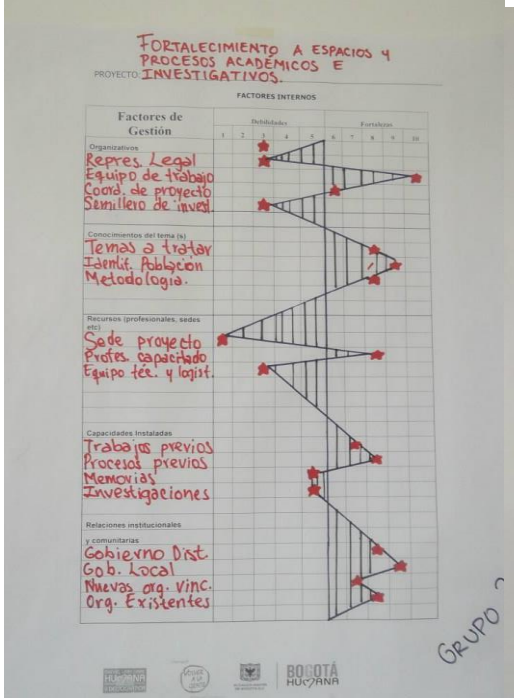 FORTALECIMIENTO A ESPACIOS Y
PROCESOS ACADÉMICOS E
PROYECTO: INVESTIGATIVOS.
FACTORES INTERNOS
Factores de
Gestión
Debilidades
Fortalezas
1 2 3 4 5 6 7 8 9 10
Organizativos
Repres. Legal
Equipo de trabajo
Coord. de proyecto
Semillero de invest.
Conocimientos del tema (s)
Temas a tratar
Identif. Población
Metodología.
Recursos (profesionales, sedes
etc)
Sede proyecto
Profes. capacitado
Equipo téc. y logist.
Capacidades Instaladas
Trabajos previos
Procesos previos
Memorias
Investigaciones
Relaciones institucionales
y comunitarias
Gobierno Dist.
Gob. Local
Nuevas org. vinc.
Org. Existentes
GRUPO
HUMANA
BOGOTÁ
HUMANA